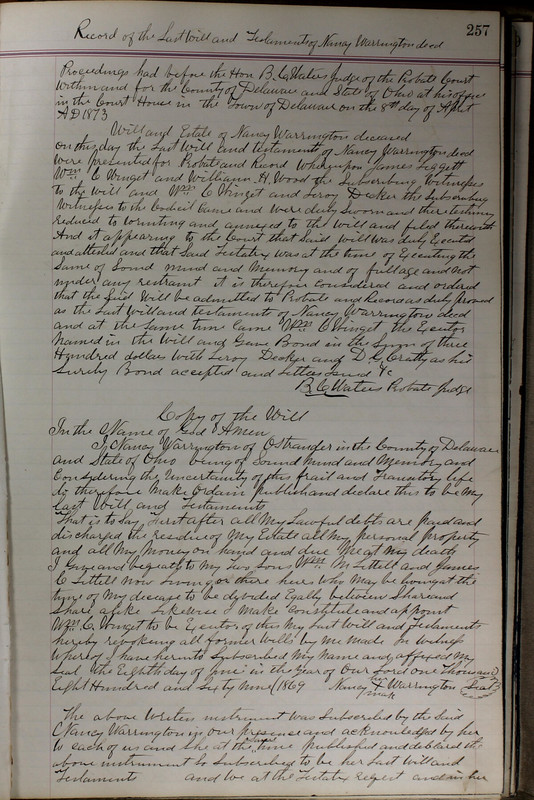 257
Record of the Last Will and Testament of Nancy Warrington decd
Proceedings had before the Hon B. C. Waters Judge of the Probate Court
Within and for the County of Delaware and State of Ohio at his office
in the Court House in the Town of Delaware on the 8th day of April
AD 1873
Will and Estate of Nancy Warrington deceased
on this day the Last Will and testament of Nancy Warrington decd
were presented for Probate and Record Whereupon James Liggett
Wm C Winget and William H. Wood the Subscribing Witnesses
to the Will and Wm C Winget and Leroy Decker the Subscribing
Witnesses to the Codicil Came and were duly Sworn and their testimony
reduced to writing and annexed to the Will and filed therewith
And it appearing to the Court that Said Will was duly Executed
and attested and that Said Testatrix was at the time of Executing the
Same of Sound mind and Memory and of full age and not
under any restraint it is therefore considered and ordered
that the Said Will be admitted to Probate and Record as duly proved
as the Last Will and testament of Nancy Warrington decd
and at the Same time Came Wm C Winget the Executor
Named in the Will and Gave Bond in the Sum of three
Hundred dollars with Leroy Decker and D. G. Cratty as his
Surety Bond accepted and Letters Issued &c
B. C. Waters Probate Judge
Copy of the Will
In the Name of God Amen
I, Nancy Warrington of Ostrander in the County of Delaware
and State of Ohio being of Sound Mind and Memory and
Considering the Uncertainty of this frail and Transitory life
do therefore Make Ordain publish and declare this to be My
Last Will and Testament
That is to Say first after all My Lawful debts are paid and
discharged the residue of My Estate all My personal property
and all My Money on hand and due Me at My death
I Give and bequeath to My two Sons Wm M Littell and James
C Littell Now Living or there heirs Who May be living at the
time of My decease to be devided Eqally between Share and
Share alike Likewise I Make Constitute and appoint
Wm C Winget to be Executor of this My Last Will and Testament
hereby revoking all former Wills by me Made In Witness
Whereof I have hereunto Subscribed My Name and affixed My
Seal the Eighth day of June in the Year of Our Lord One Thousand
Eight Hundred and Sixty Nine (1869 Nancy her X mark Warrington (Seal)
The above Writen instrument was Subscribed by the Said
Nancy Warrington in our presence and acknowledged by her
to each of us and She at the Same time published and declared the
above instrument So Subscribed to be her Last Will and
Testament and we at the Testatrix reqest and in her